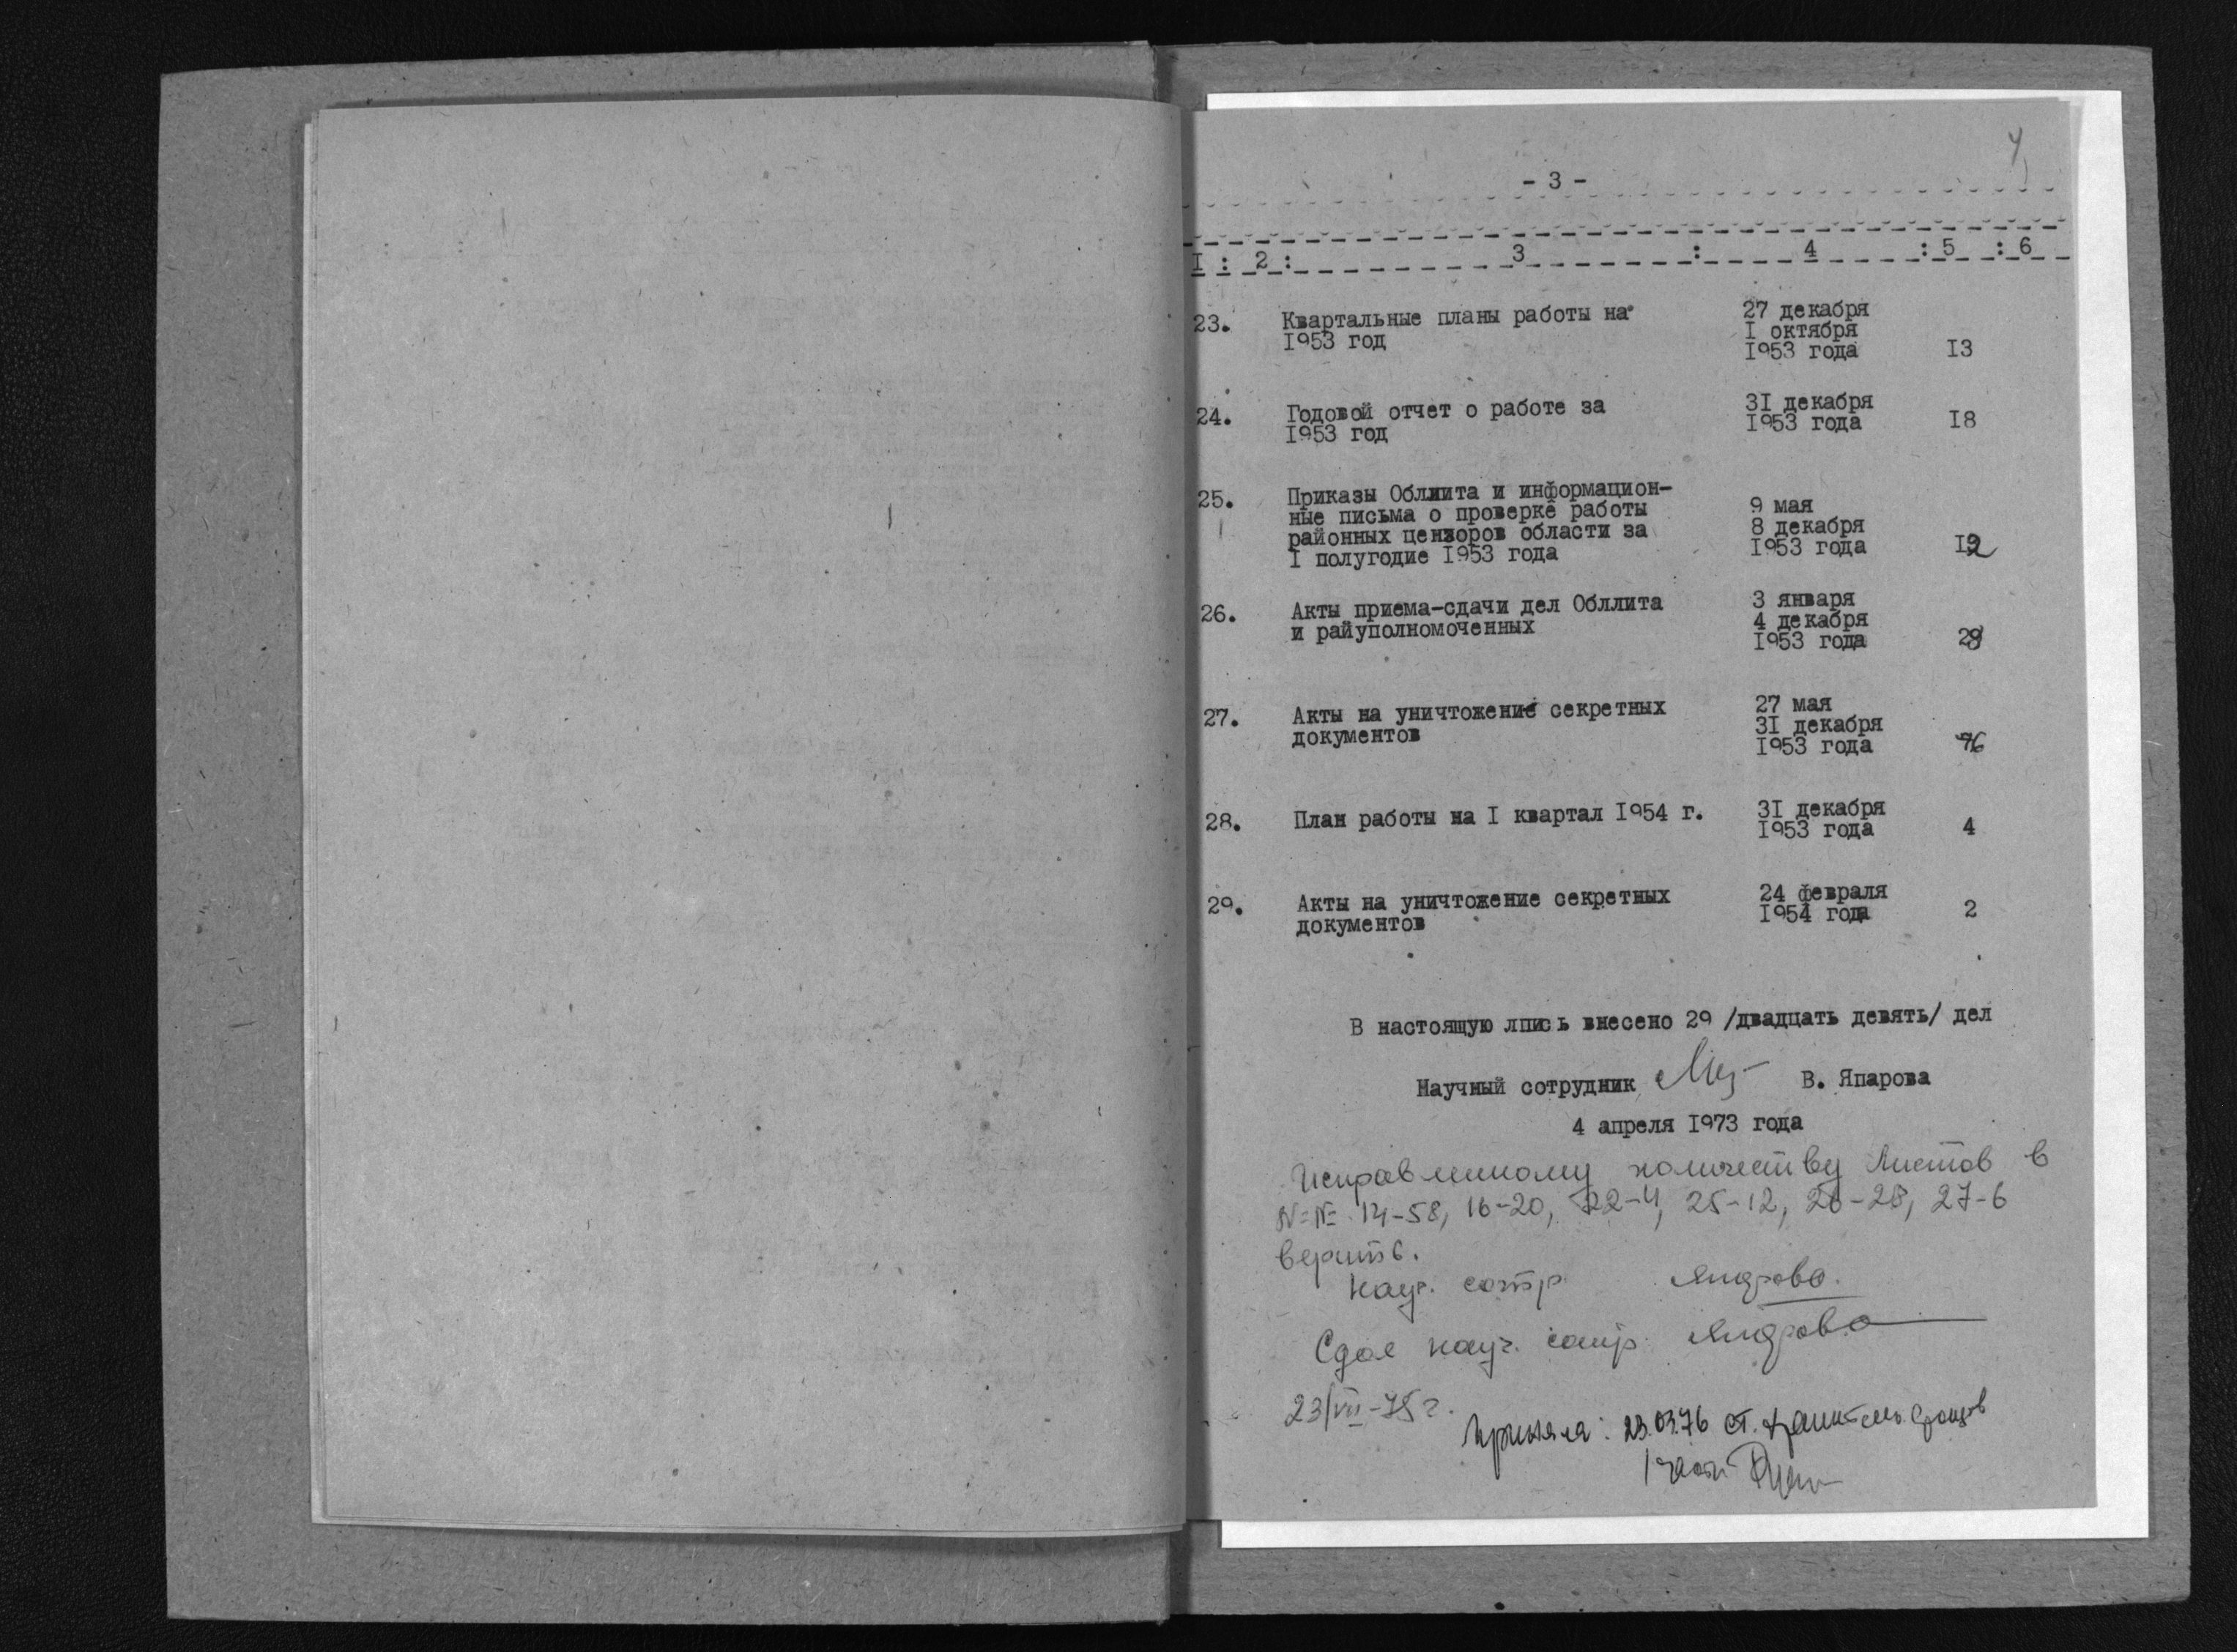 4
- 3 -
I : 2 : 3 : 4 : 5 : 6
23. Квартальные планы работы на 27 декабря
I октября
I953 год I953 года I3
24. Годовой отчет о работе за 3I декабря
I953 год I953 года I8
25. Приказы Обллита и информацион-
ные письма о проверке работы 9 мая
районных цензоров области за 8 декабря
I полугодие I953 года I953 года I2
26. Акты приема-сдачи дел Обллита 3 января
и райуполномоченных 4 декабря
I953 года 28
27. Акты на уничтожение секретных 27 мая
документов 3I декабря
I953 года 6
28. План работы на I квартал I954 г. 3I декабря
I953 года 4
29. Акты на уничтожение секретных 24 февраля
документов I954 года 2
В настоящую лпись внесено 29 /двадцать девять/ дел
Научный сотрудник В. Япарова
4 апреля I973 года
Исправленному количеству листов в
№№ 14-58, 16-20, 22-4, 25-12, 26-28, 27-6
верить.
Науч. сотр.
Сдал науч. сотр.
23/VII-75 г.
Приняла: 23.03.76 ст. хранитель фондов